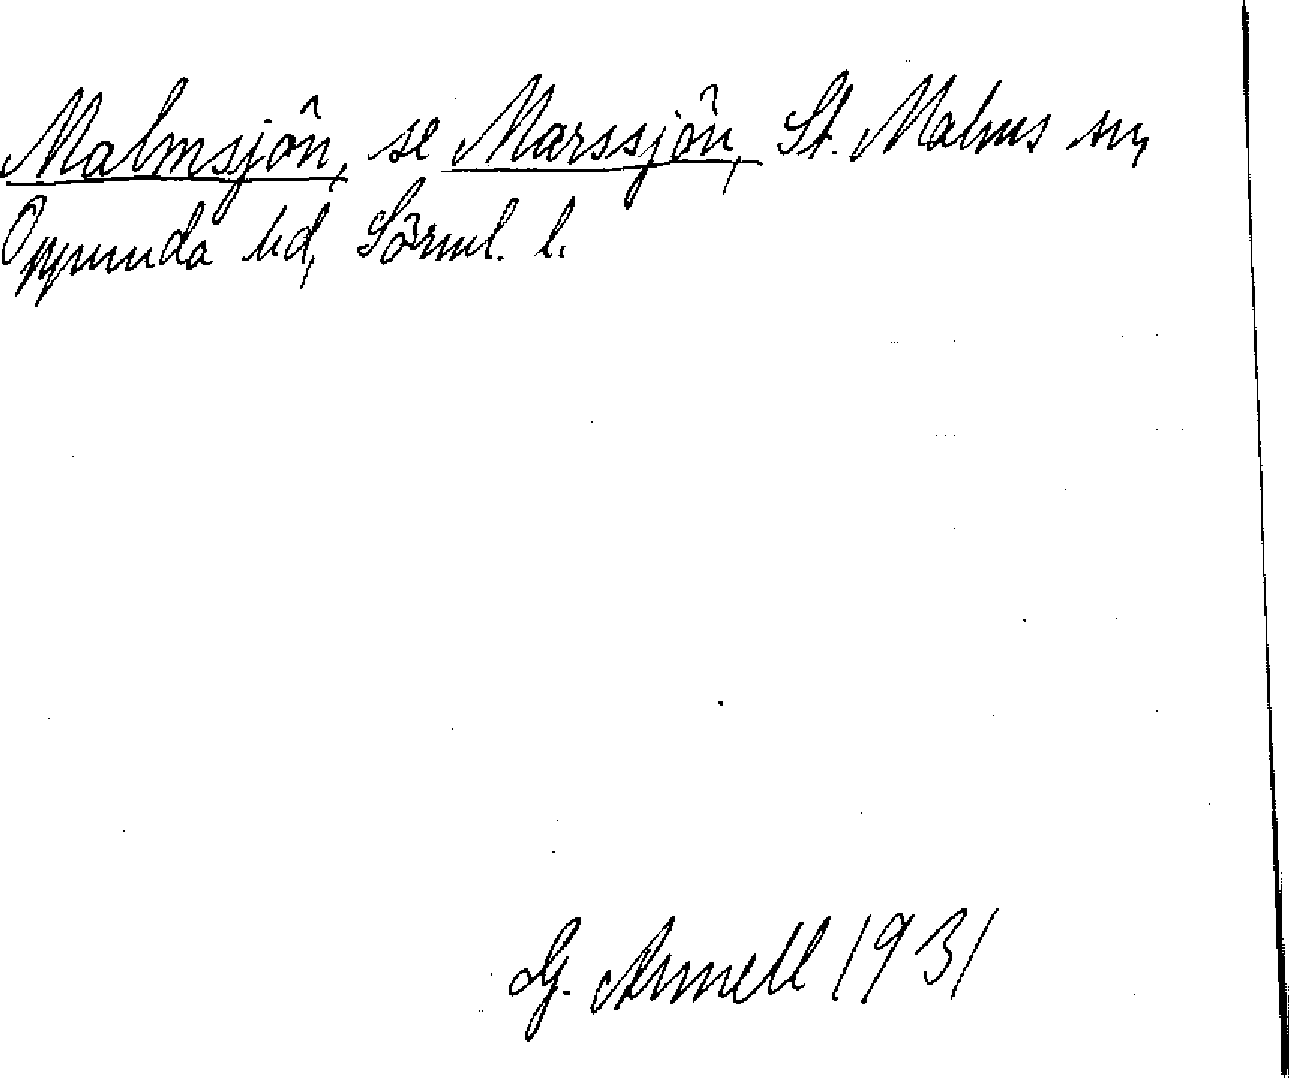 Malmsjön, se Marssjön, St. Malms sn,
Oppunda hd, Sörml. l.
G. Armell 1931